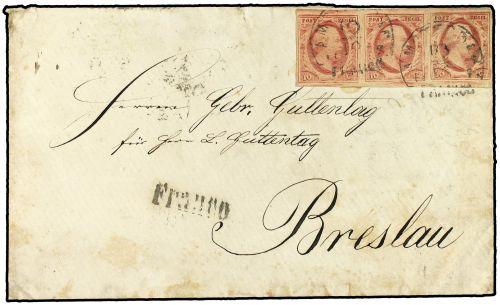 POST ZEGEL POST ZEGEL POST ZEGEL
Franco
Herren Gebr. Guttentag
für Herrn L. Guttentag
Franco
Breslau